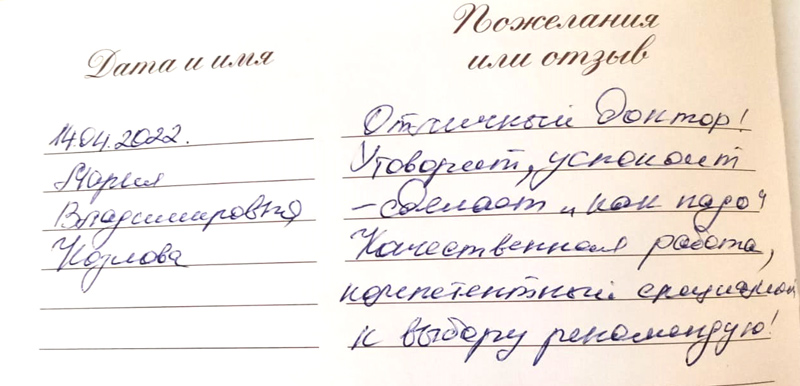 Дата и имя
Пожелания
или отзыв
14.04.2022.
Мария
Владимировна
Козлова
Отличный доктор!
Уговорит, успокоит
– сделает „как надо“
Качественная работа,
компетентный специалист
к выбору рекомендую!